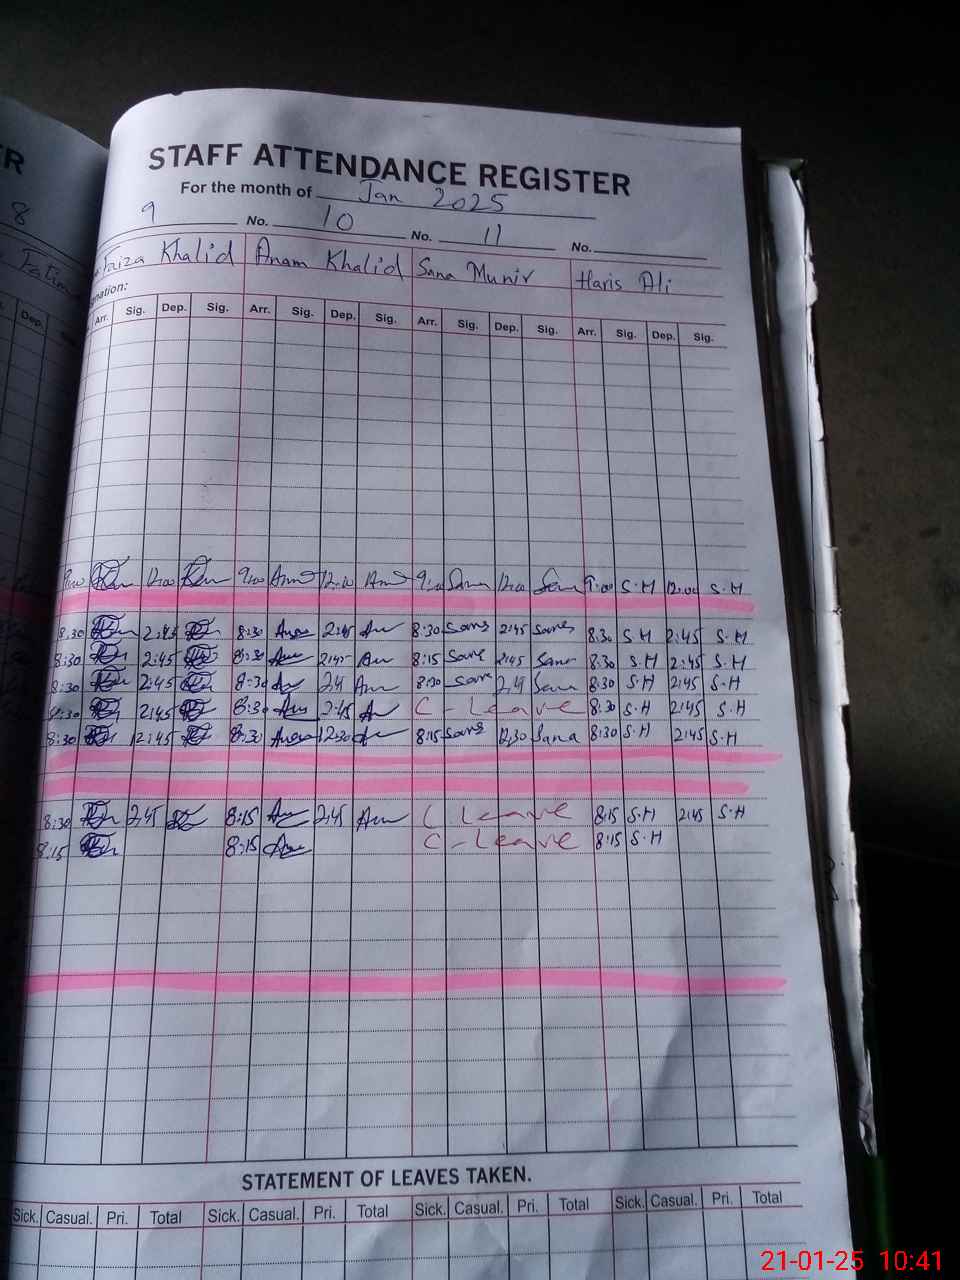 ER
STAFF ATTENDANCE REGISTER
For the month of Jan 2025
8 9 No. 10 No. 11 No.
Fatima Faiza Khalid Anam Khalid Sana Munir Haris Ali
nation:
Dep. Arr. Sig. Dep. Sig. Arr. Sig. Dep. Sig. Arr. Sig. Dep. Sig. Arr. Sig. Dep. Sig.
9:00 12:00 9:00 12:00 9:00 12:00 9:00 S.H 12:00 S.H
8:30 2:45 8:30 2:45 8:30 Sana 2:45 Sana 8:30 S.H 2:45 S.H
8:30 2:45 8:30 2:45 8:15 Sana 2:45 Sana 8:30 S.H 2:45 S.H
8:30 2:45 8:30 8:30 Sana Sana 8:30 S.H 2:45 S.H
8:30 2:45 8:30 2:45 C-Leave 8:30 S.H 2:45 S.H
8:30 12:45 8:30 12:30 8:15 Sana 12:30 Sana 8:30 S.H 2:45 S.H
8:30 2:45 8:15 2:45 C Leave 8:15 S.H 2:45 S.H
8:15 8:15 C-Leave 8:15 S.H
STATEMENT OF LEAVES TAKEN.
Sick. Casual. Pri. Total Sick. Casual. Pri. Total Sick. Casual. Pri. Total Sick. Casual. Pri. Total
21-01-25 10:41